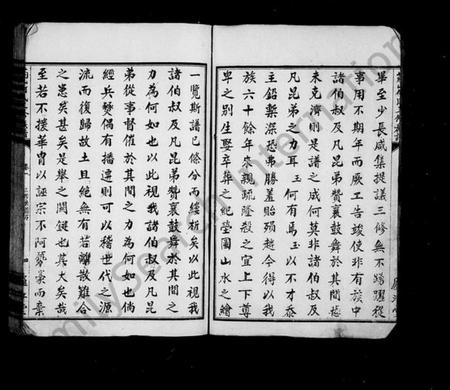 畢至少長咸集提議三修無不踴躍從
事用不期年而厥工告竣使非有族中
諸伯叔及凡昆弟贊襄鼓舞於其間恐
未克濟則是譜之成何莫非諸伯叔及
凡昆弟之力耳玉何有焉玉以不才忝
主鉛槧深恐弗勝羞貽殞越令得以我
族六十餘年來親疏隆殺之宜上下尊
卑之別生娶卒葬之紀塋圖山水之繪
一覽斯譜已條分而縷析矣以此視我
諸伯叔及凡昆弟贊襄鼓舞於其間之
力為何如也以此視我諸伯叔及凡昆
弟從事督催於其間之力為何如也倘
經兵燹偶有播遷則可以稽世代之源
流而復歸故土且絕無有若離散難合
之患矣甚矣是舉之關鍵也其大矣哉
至若不援華胄以誣宗不阿豪而棄
FamilySearch International